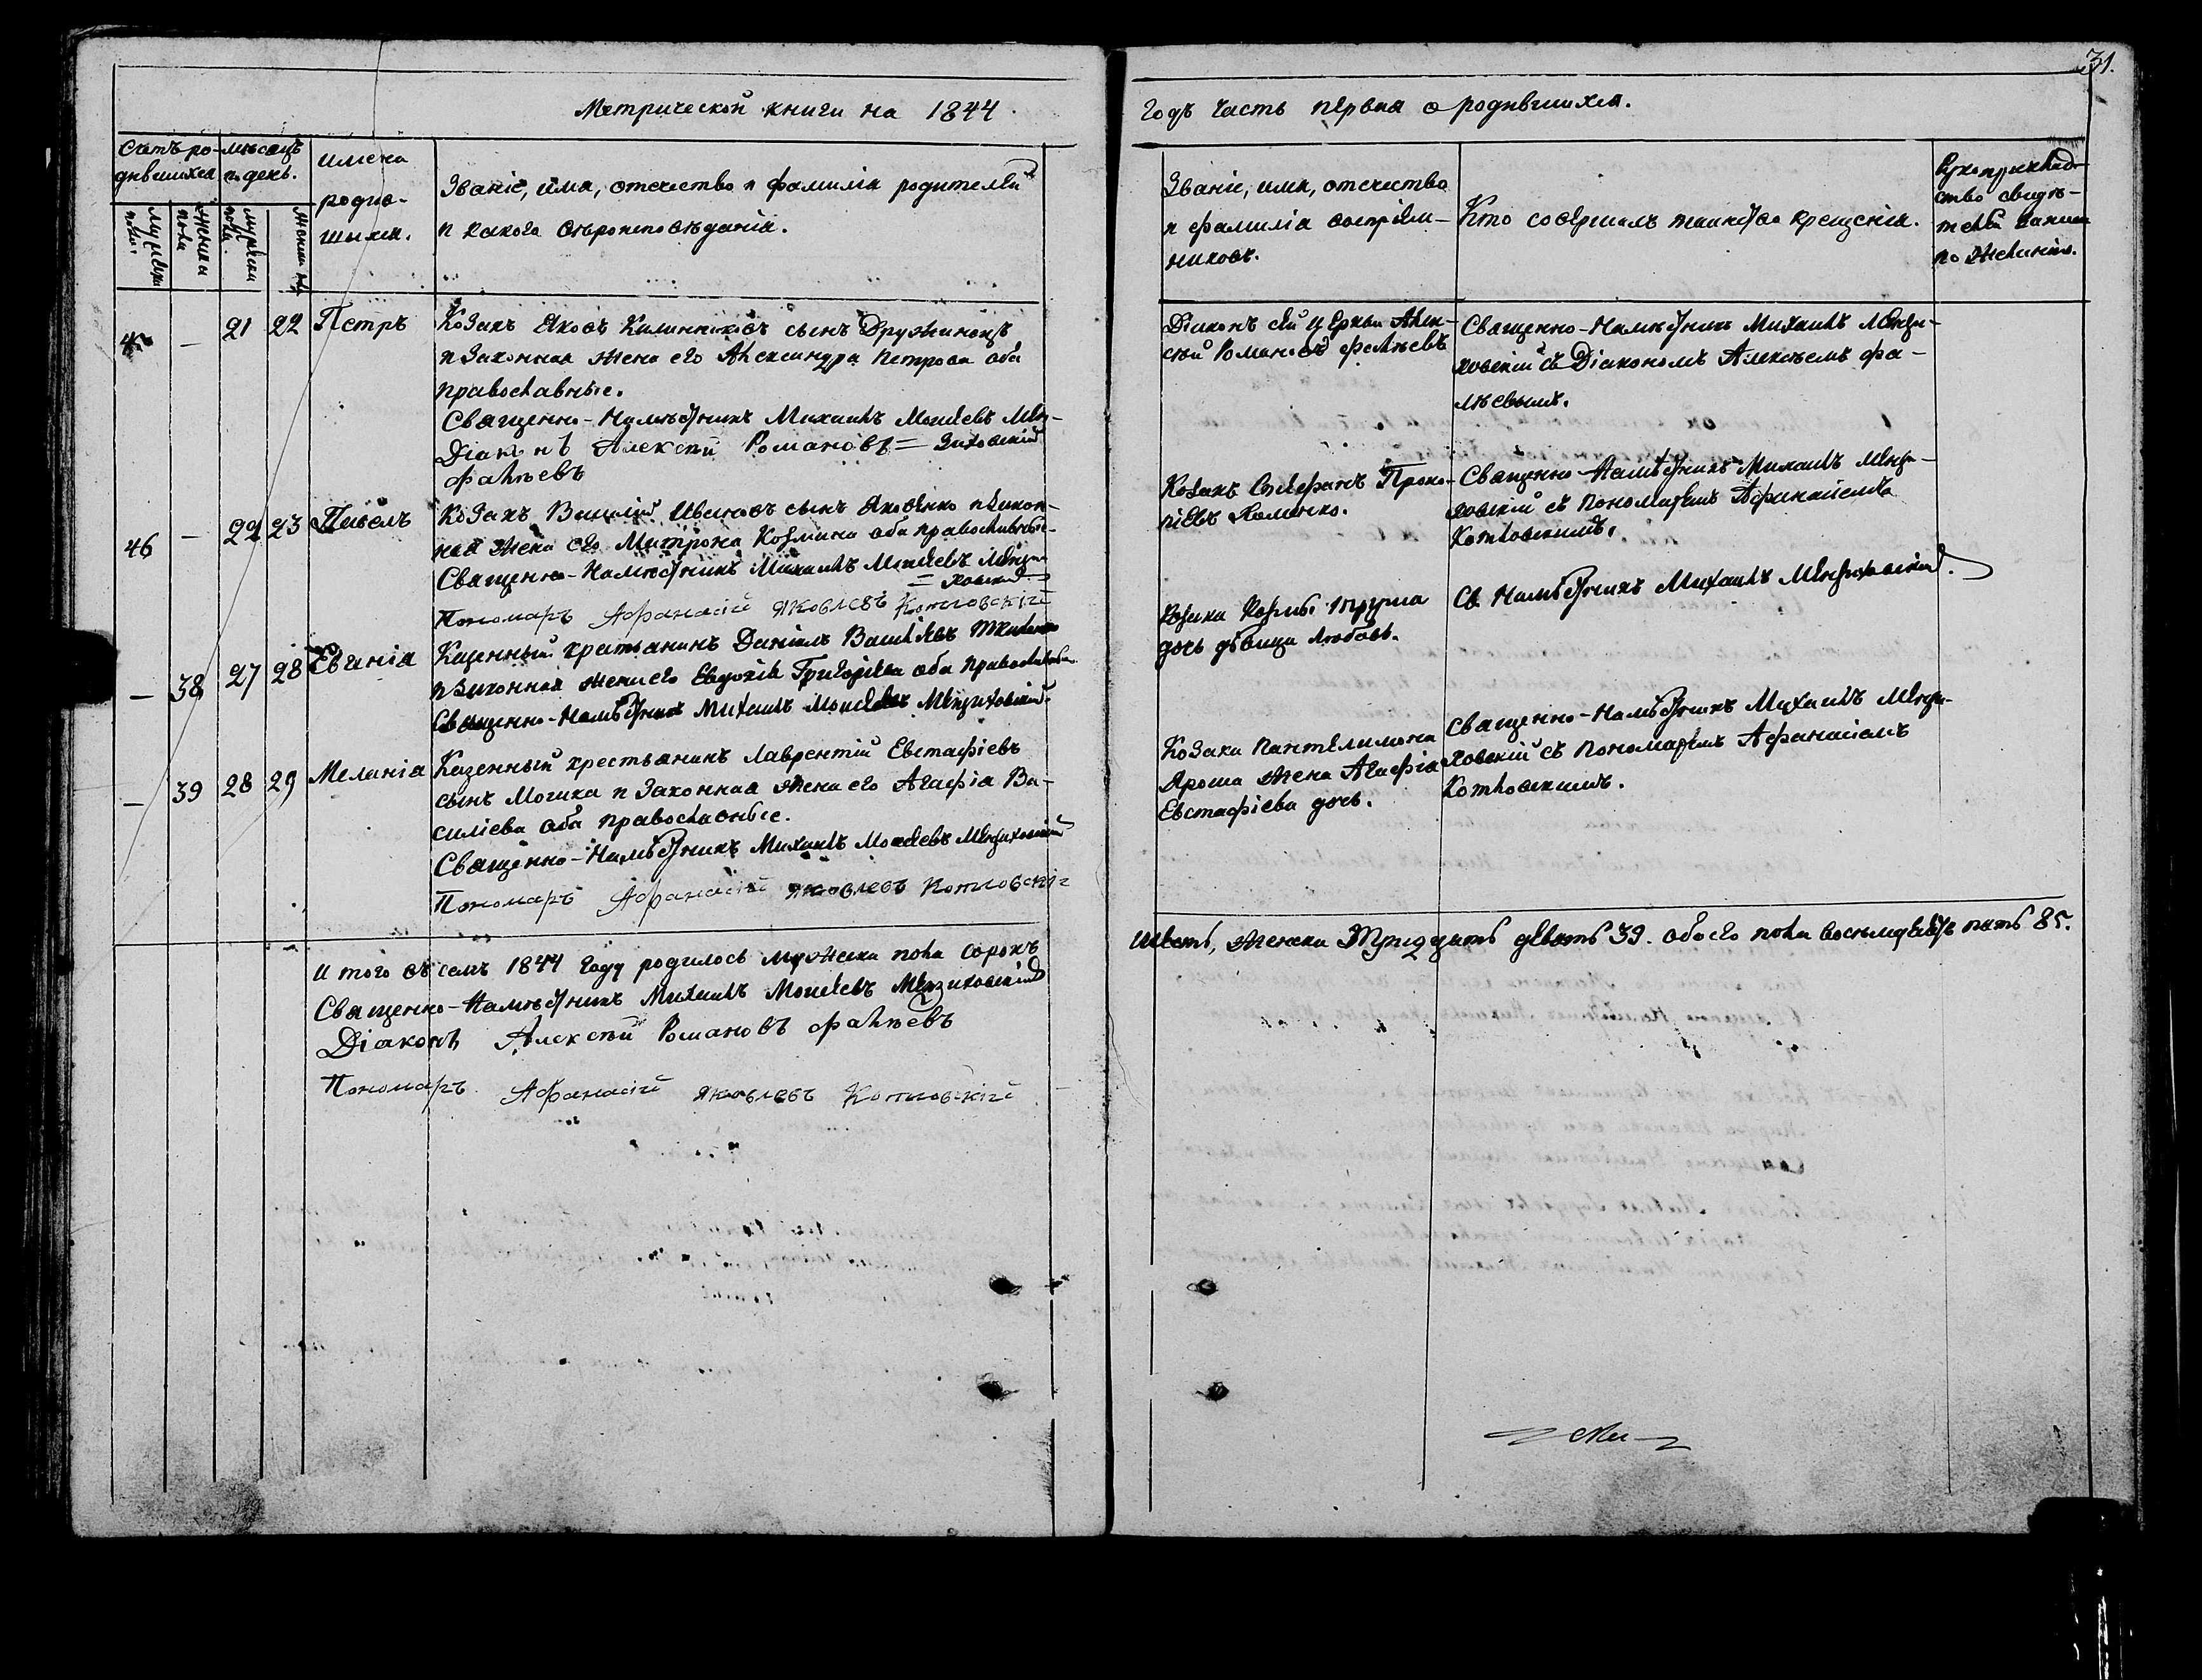 31.
Метрической книги на 1844
годъ часть первая о родившихся.
Счетъ ро-
дившихся
мѣсяцъ
и день.
имена
родив-
шыхся.
Званіе, имя, отчество и фамилія родителей
и какого вѣроисповѣданія.
Званіе, имя, отчество
и фамилія воспріем-
никовъ.
Кто совершалъ таинство крещенія.
Рукоприклад-
ство свидѣ-
телей записи
по желанію.
Мужеска
пола.
Женска
пола
45 — 21 22 Петръ
Козакъ Яковъ Калинниковъ сынъ Дружинецъ
и законная жена его Александра Петрова оба
православные.
Священно-Намѣстникъ Михаилъ Моисеевъ Мен-
Діаконъ Алексѣй Романовъ = зиховскій
Фалѣевъ
Діаконъ сей церкви Алек-
сѣй Романовъ Фалѣевъ
Священно-Намѣстникъ Михаилъ Мензи-
ховскій съ Діакономъ Алексѣемъ Фа-
лѣевымъ.
46 — 22 23 Павелъ
Козакъ Василій Ивановъ сынъ Яковенко и закон-
ная жена его Матрона Козмина оба православные
Священно-Намѣстникъ Михаилъ Моисеевъ Мензи-
= ховскій
Пономаръ Афанасій Яковлевъ Котловскій
Козакъ Стефанъ Проко-
піевъ Хоменко.
Священно-Намѣстникъ Михаилъ Мензи-
ховскій съ Пономаремъ Афанасіемъ
Котловскимъ.
— 38 27 28 Евгенія
Казенный крестьянинъ Даніилъ Василіевъ Ткаченко
и законная жена его Евдокія Григоріева оба православные
Священно-Намѣстникъ Михаилъ Моисеевъ Мензиховскій
Козака
дочь дѣвица Любовь.
Св. Намѣстникъ Михаилъ Мензиховскій.
— 39 28 29 Меланія
Казенный крестьянинъ Лаврентій Евстафіевъ
сынъ Могика и законная жена его Агафія Ва-
силіева оба православные.
Священно-Намѣстникъ Михаилъ Моисеевъ Мензиховскій
Пономаръ Афанасій Яковлевъ Котловскій
Козака Пантелимона
Яроша жена Агафія
Евстафіева дочь.
Священно-Намѣстникъ Михаилъ Мензи-
ховскій съ Пономаремъ Афанасіемъ
Котловскимъ.
И того въ семъ 1844 году родилось мужеска пола сорокъ
шесть, женска Тридцать девять 39. обоего пола восемдесятъ пять 85.
Священно-Намѣстникъ Михаилъ Моисеевъ Мензиховскій
Діаконъ Алексѣй Романовъ Фалѣевъ
Пономаръ Афанасій Яковлевъ Котловскій